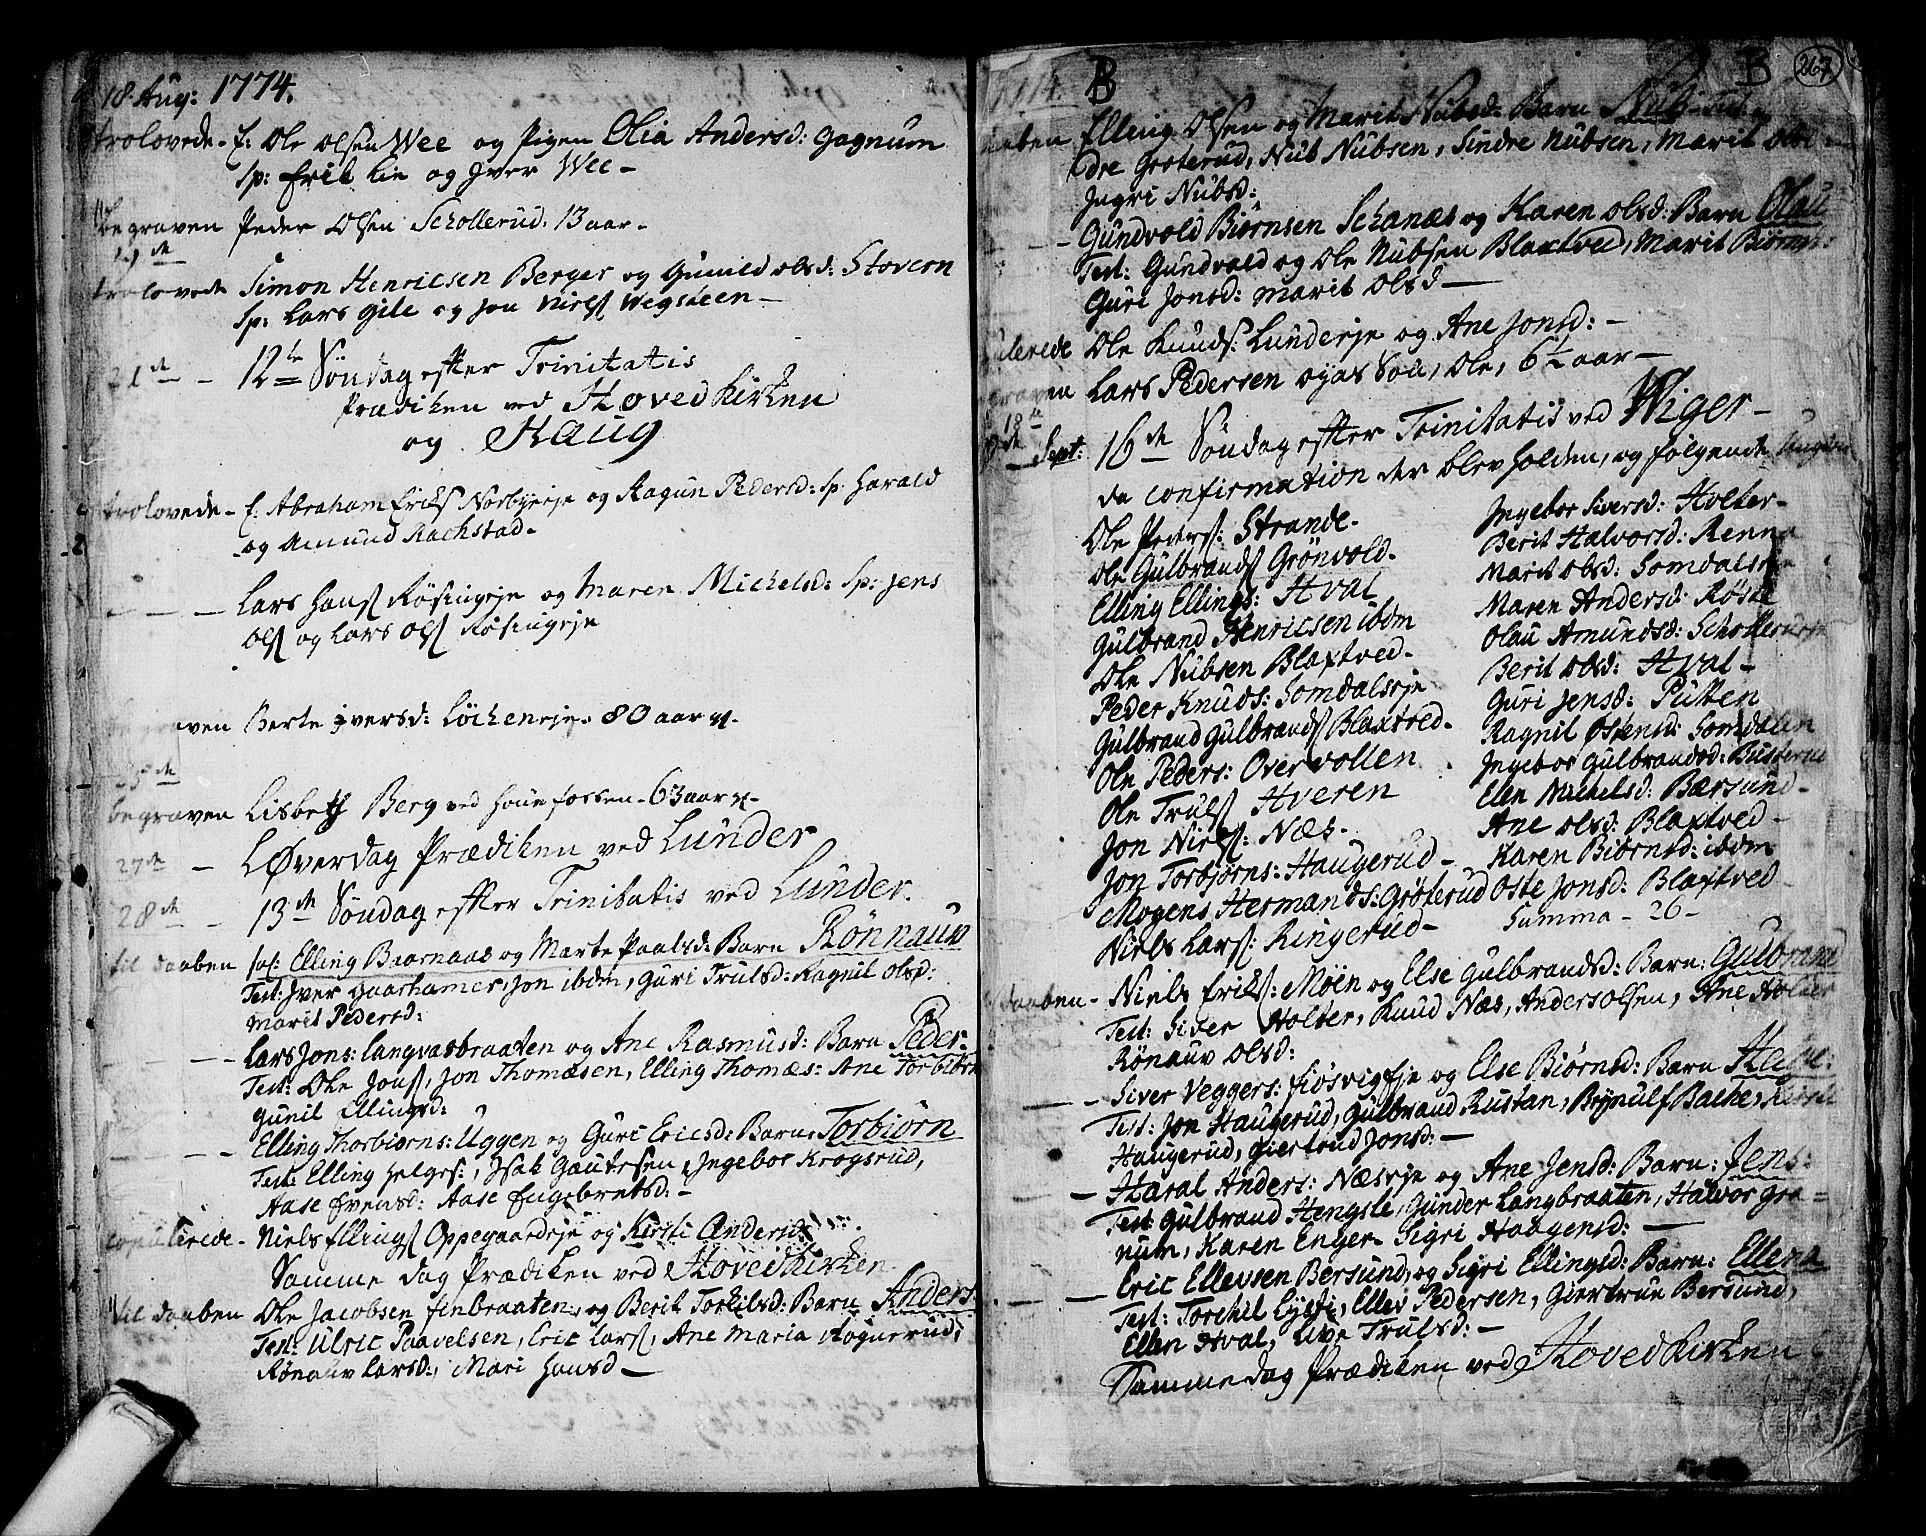 18 Aug: 1774.
trolovede - E: Ole Olsen Wee og Pigen Olia Andersd: Gagnum
Sp: Erik Lie og Iver Wee -
Begraven Peder Olsen Schollerud. 13 aar -
19de
trolovede Simon Henricsen Berger og Gunild Olsd: Stovern
Sp: Lars Gile og Jon Niels Wegsteen -
21de - 12te Søndag efter Trinitatis
Prædiken ved Hoved Kirken
og Haug
trolovede - E: Abraham Eriks Norbyeje og Ragun Pedersd: Sp: Harald
og Amund Rachstad -
- - - Lars Hans Røsingeje og Maren Michelsd: Sp: Jens
Ols og Lars Ols Røsingeje
begraven Berte Iversd: Løcheneje. 80 aar
25de
begraven Lisbeth Berg ved Hønefossen - 63 aar
27de - Løverdag Prædiken ved Lunder
28de - 13de Søndag efter Trinitatis ved Lunder.
til daaben Elling Biørnaas og Marte Paalsd: Barn Rønnauv
Test: Iver Gaarhamer, Jon ibdm, Guri Trulsd: Ragnil Olsd:
Marit Pedersd:
- - Lars Jons: Langvasbraaten og Ane Rasmusd: Barn Peder.
Test: Ole Jons, Jon Thomæsen, Elling Thomæs: Ane
Gunil Ellingsd:
- - - Elling Thorbiørns: Uggen og Guri Ericsd: Barn: Torbiørn
Test: Elling Helges:, Isak Gautesen, Ingebor Krogsrud,
Aase Evensd: Aase Engebretsd: -
copulerede - Niels Ellings Oppegaardeje og Kirsti Andersd:
Samme dag Prædiken ved Hoved Kirken
til daaben Ole Jacobsen Finbraaten, og Berit Torkilsd: Barn Anders
Test: Ulric Paavelsen, Eric Lars, Ane Maria Hognerud,
Rønauv Larsd:, Mari Hansd -
1774. B B 267
daaben Elling Olsen og Marit Nubsd: Barn Nub. Test:
Grøterud, Nub Nubsen, Sindre Nubsen, Marit Ols
Ingri Nubsd:
- - - Gundvold Biørnsen Schanæs og Karen Olsd: Barn Olau
Test: Gundvald og Ole Nubsen Blaxtved, Marit Biørnsd:
Guri Jonsd: Marit Olsd -
Ole Knuds: Lunderje og Ane Jonsd: -
Lars Pedersen Søn, Ole, 6 1/2 aar -
18de
Sept: 16de Søndag efter Trinitatis ved Wiger -
da confirmation der blev holden, og følgende
Ole Peders: Strande.
Ole Gulbrands Grønvold.
Elling Ellings: Hval
Gulbrand Henricsen ibdm
Ole Nubsen Blaxtved.
Peder Knuds: Somdalseje
Gulbrand Gulbrands Blaxtved.
Ole Peders: Overvollen
Ole Truls Hveren
Jon Niels: Næs.
Jon Torbjørns: Haugerud -
Mogens Hermands: Grøterud
Niels Lars: Ringerud -
Ingebor Siversd: Holter -
Berit Halvorsd: Renna
Marit Olsd: Somdalseje
Maren Andersd: Røste
Olau Amundsd: Schollerud
Berit Olsd: Hval -
Guri Jensd: Putten
Ragnil Østensd: Somdalen
Ingebor Gulbrandsd: Busterud
Elen Michelsd: Bærsund -
Ane Olsd: Blaxtved -
Karen Biørnsd: ibdm
Oste Jonsd: Blaxtved
Summa - 26 -
daaben - Niels Eriks: Moen og Else Gulbrandsd: Barn: Gulbrand
Test: Siver Holter, Knud Næs, Anders Olsen, Ane Holter
Rønauv Olsd:
- - - Siver Veggers: Fiøsvigeje og Else Biørnsd: Barn Helge.
Test: Jon Haugerud, Gulbrand Rustan, Brynulf Bache, Kirsti
Haugerud, Giertrud Jonsd: -
- Haral Anders: Næseje og Ane Jensd: Barn: Jens.
Test: Gulbrand Hengsle, Gunder Langbraaten, Halvor Gre=
num, Karen Enger. Sigri Haagensd: -
- - Eric Ellevsen Bersund, og Sigri Ellingsd: Barn: Ellena
Test: Torchil Lysti, Ellev Pedersen, Giertrue Bersund,
Ellen Hval, Live Trulsd: -
Samme dag Prædiken ved Hoved Kirken